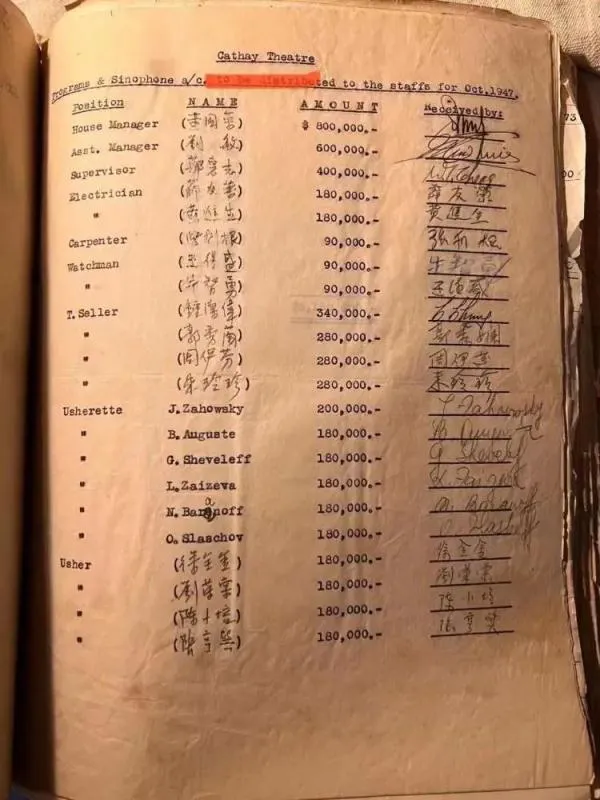 Cathay Theatre
Programs & Sinophone a/c. to be distributed to the staffs for Oct.1947.
Position NAME AMOUNT Received by:
House Manager $ 800,000.-
Asst. Manager (劉 敏) 600,000.-
Supervisor 400,000.- W.T. Cheng
Electrician 180,000.-
" 180,000.- 黄進生
Carpenter 90,000.- 張利根
Watchman (王伯盛) 90,000.-
" 90,000.-
T. Seller 340,000.-
" (郭秀蘭) 280,000.- 郭秀蘭
" (周伊芳) 280,000.- 周伊芳
" (朱玲珍) 280,000.- 朱玲珍
Usherette J. Zahowsky 200,000.- Zahowsky
" B. Auguste 180,000.-
" G. Sheveleff 180,000.- G. Sheveleff
" L. Zaizeva 180,000.-
" N. Baranoff 180,000.-
" O. Slaschov 180,000.-
Usher (徐金奎) 180,000.- 徐金奎
" (劉蔭棠) 180,000.- 劉蔭棠
" (陳小培) 180,000.- 陳小培
" 180,000.-
73
00